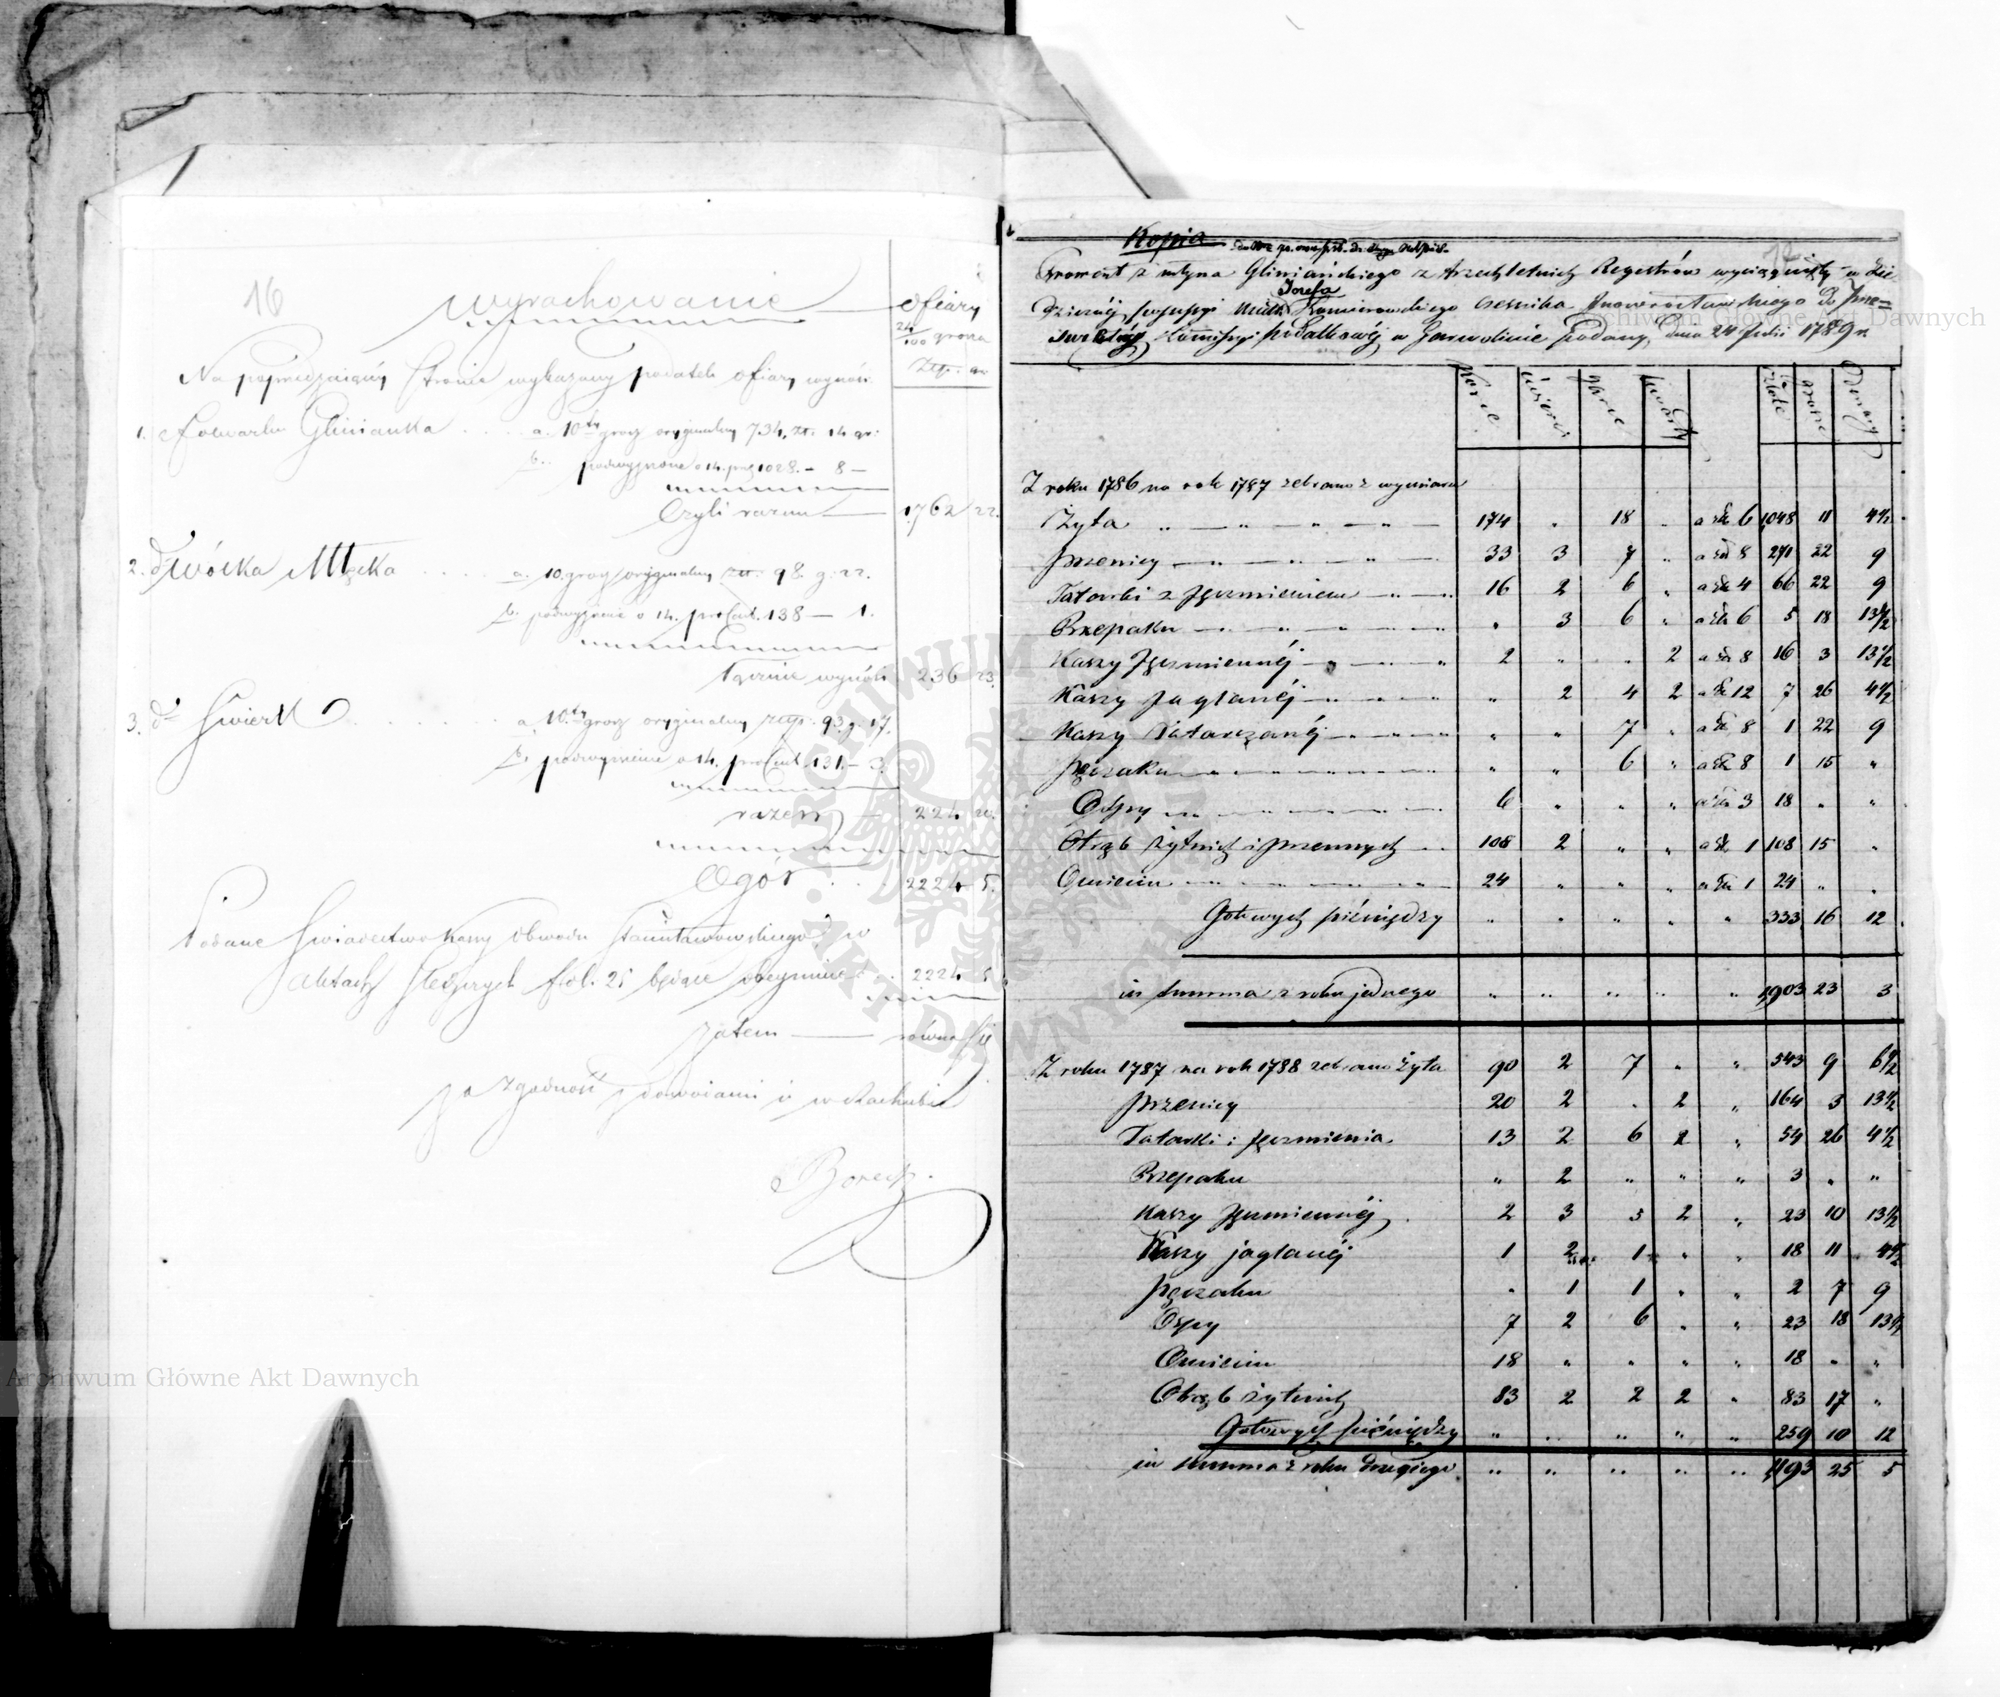 16
Wyrachowanie
ofiary
24/100 grosza
Złp. gr.
Na poprzedzającéj stronie wykazany podatek ofiary wynosi
1. Folwarku Glinianka . . . a. 10ty grosz oryginalny 734. złt. 14 gr.
b. podwyższone o 14. pro 1028. — 8 —
Czyli razem — 1762 22.
2. dto Wólka Mlęcka . . . . a. 10. grosz oryginalny złt. 98. g. 22.
b. podwyższenie o 14. procent. 138 — 1.
Łącznie wynosi 236 23.
3. dto Świerk . . . . . . a. 10ty grosz oryginalny złp. 93 g. 17.
b. podwyższenie o 14. procent. 131. — 3.
razem — 224 20.
Ogół . . . 2224 5.
Podane Świadectwo Kassy Obwodu Stanisławowskiego w
aktach fol. 25 będące obejmuie . . 2224 5
zatem — równa się
za zgodność z dowodami i w Rachubie
Borech.
Kopia
12
Prowent z młyna Gliniańskiego z trzechletnich Regestrów wyciągnięty w dzie
Józefa
dzicznéj possessyi Kazimierowskiego Czesnika Inowrocławskiego do Prze=
świetnéj Kommissyi Podatkowéj w Garwolinie podany, dnia 24 Julii 1789 r.
korce ćwierci garce kwarty złote grosze Denary
Z roku 1786 na rok 1787 zebrano z wymiaru
Żyta „ — „ — „ — „ — 174 „ 18 „ a zł 6 1048 11 4 1/2
Pszenicy — „ — „ — „ — 33 3 7 „ a zł 8 271 22 9
Tatarki z Jęczmieniem — „ — „ 16 2 6 „ a zł 4 66 22 9
Rzepaku — „ — „ — „ — „ „ 3 6 „ a zł 6 5 18 13 1/2
Kaszy Jęczmiennéj — „ — „ — „ 2 „ „ 2 a zł 8 16 3 13 1/2
Kaszy Jaglanéj — „ — „ — „ „ 2 4 2 a zł 12 7 26 4 1/2
Kaszy Tatarczanéj — „ — „ — „ „ „ 7 „ a zł 8 1 22 9
Pęczaku — „ — „ — „ — „ „ „ 6 „ a zł 8 1 15 „
Ospy — „ — „ — „ — 6 „ „ „ a zł 3 18 „ „
Otrąb żytnich i pszennych — „ 108 2 „ „ a zł 1 108 15 „
Omiecin — „ — „ — „ — 24 „ „ „ a zł 1 24 „ „
Gotowych pieniędzy „ „ „ „ „ 333 16 12
in Summa z roku jednego „ „ „ „ „ 1903 23 3
Z roku 1787 na rok 1788 zebrano Żyta 90 2 7 „ „ 543 9 6 1/2
Pszenicy 20 2 „ 2 „ 164 3 13 1/2
Tatarki i Jęczmienia 13 2 6 2 „ 54 26 4 1/2
Rzepaku „ 2 „ „ „ 3 „ „
Kaszy Jęczmiennéj 2 3 5 2 „ 23 10 13 1/2
Kaszy jaglanéj 1 2 1 „ „ 18 11 4 1/2
Pęczaku „ 1 1 „ „ 2 7 9
Ospy 7 2 6 „ „ 23 18 13 1/2
Omiecin 18 „ „ „ „ 18 „ „
Otrąb żytnich 83 2 2 2 „ 83 17 „
Gotowych pieniędzy „ „ „ „ „ 259 10 12
in Summa z roku drugiego „ „ „ „ „ 1193 25 5
Archiwum Główne Akt Dawnych
Archiwum Główne Akt Dawnych
ARCHIWUM AKT DAWNYCH